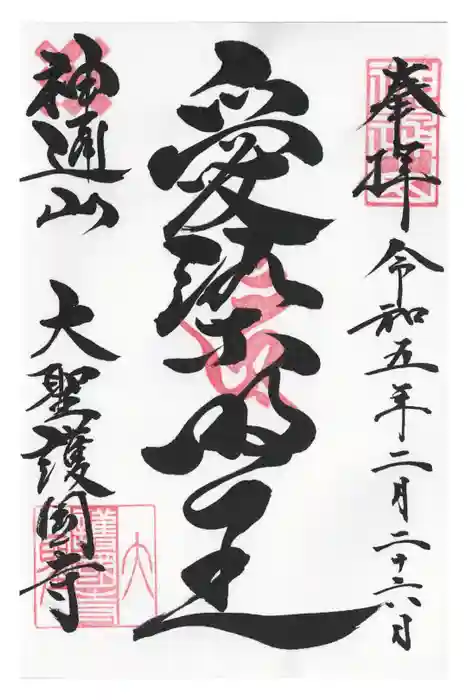 奉拝
令和五年二月二十六日
愛染明王
神通山
大聖護國寺